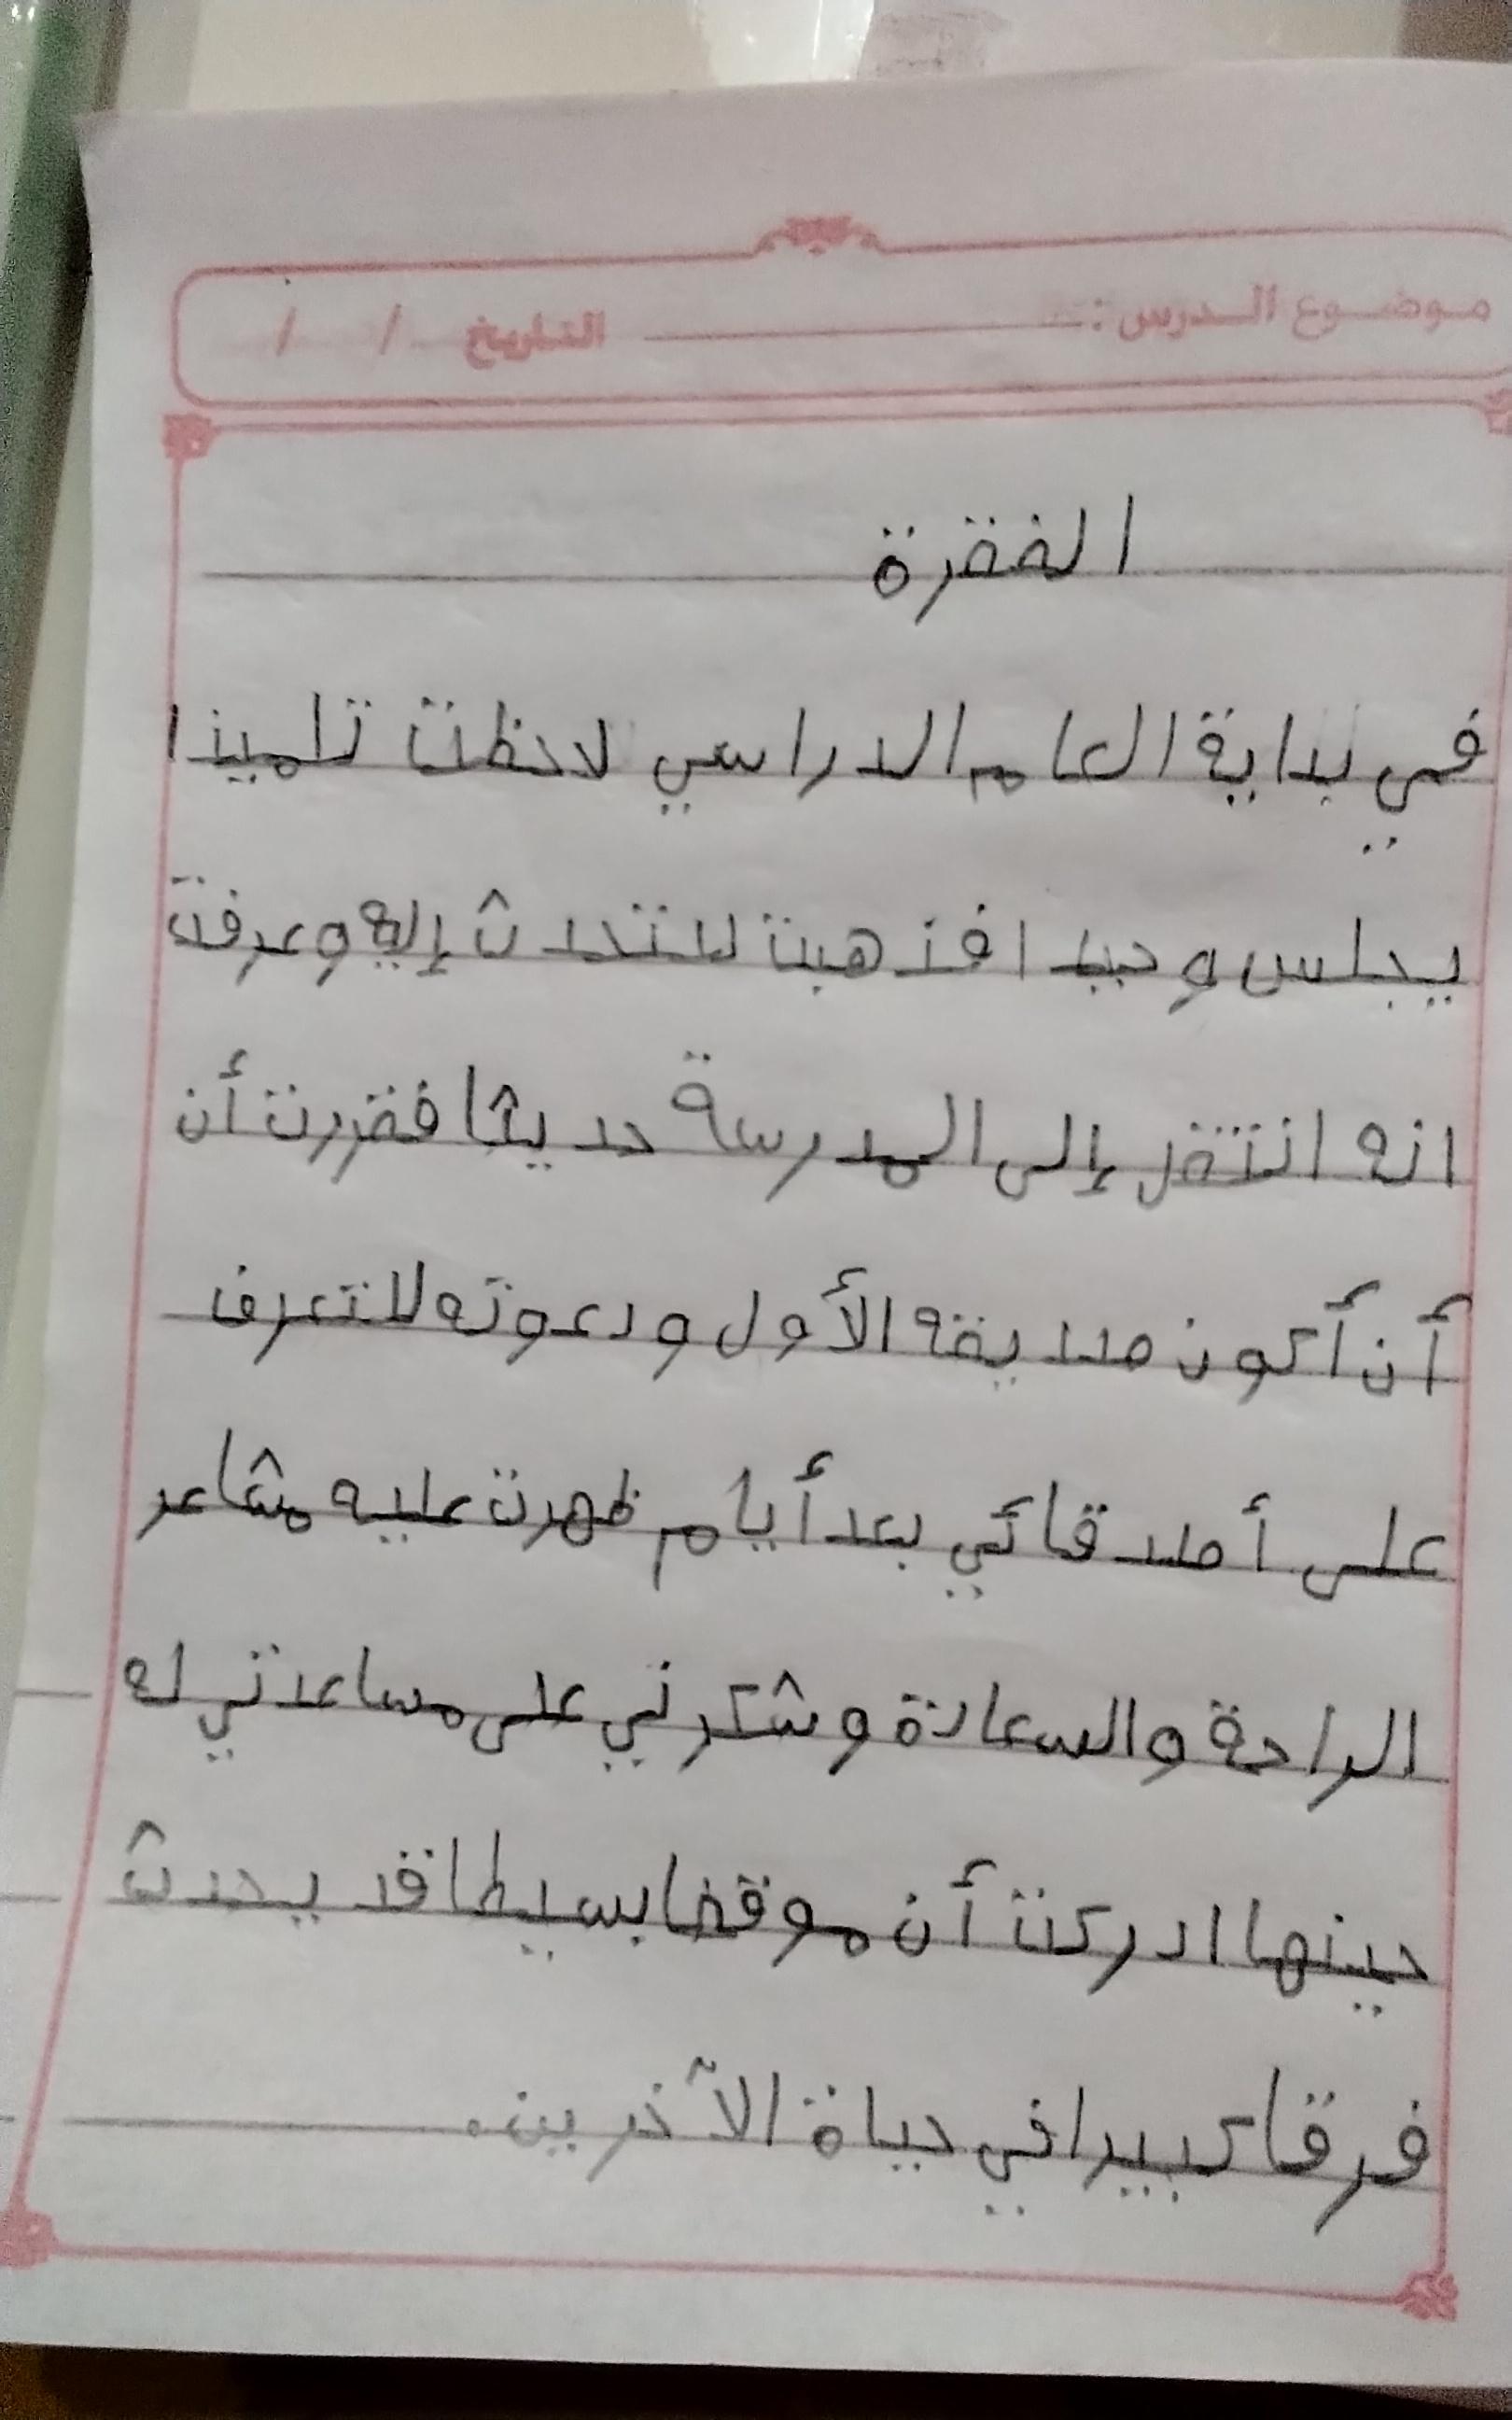 موضوع الدرس: التاريخ / /
الفقرة
في بداية العام الدراسي لاحظت تلميذا
يجلس وحيدا فذهبت للتحدث إليه وعرفت
انه انتقل إلى المدرسة حديثا فقررت أن
أن أكون صديقه الأول ودعوته لاتعرف
على أصدقائي بعد أيام ظهرت عليه مشاعر
الراحة والسعادة وشكرني على مساعدتي له
حينها ادركت أن موقفا بسيطا قد يحدث
فرقا كبيرا في حياة الآخرين.